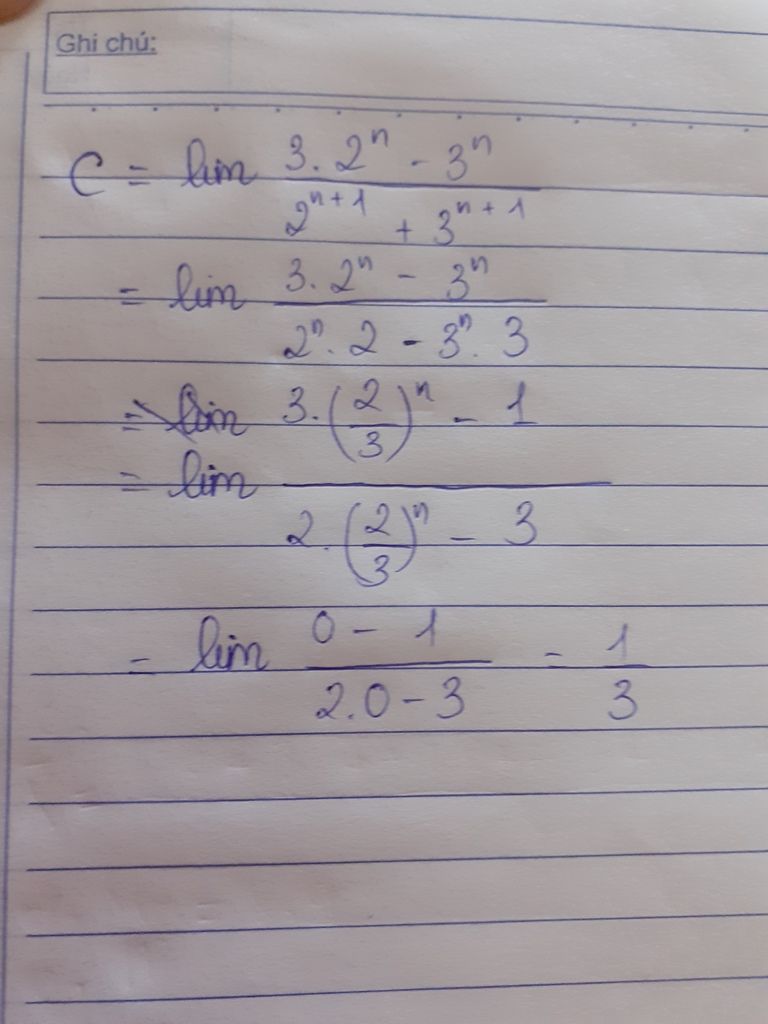 Ghi chú:
C = lim (3.2ⁿ - 3ⁿ)/(2ⁿ⁺¹ + 3ⁿ⁺¹)
= lim (3.2ⁿ - 3ⁿ)/(2ⁿ.2 - 3ⁿ.3)
= lim
= lim (3.(2/3)ⁿ - 1)/(2.(2/3)ⁿ - 3)
= lim (0 - 1)/(2.0 - 3) = 1/3